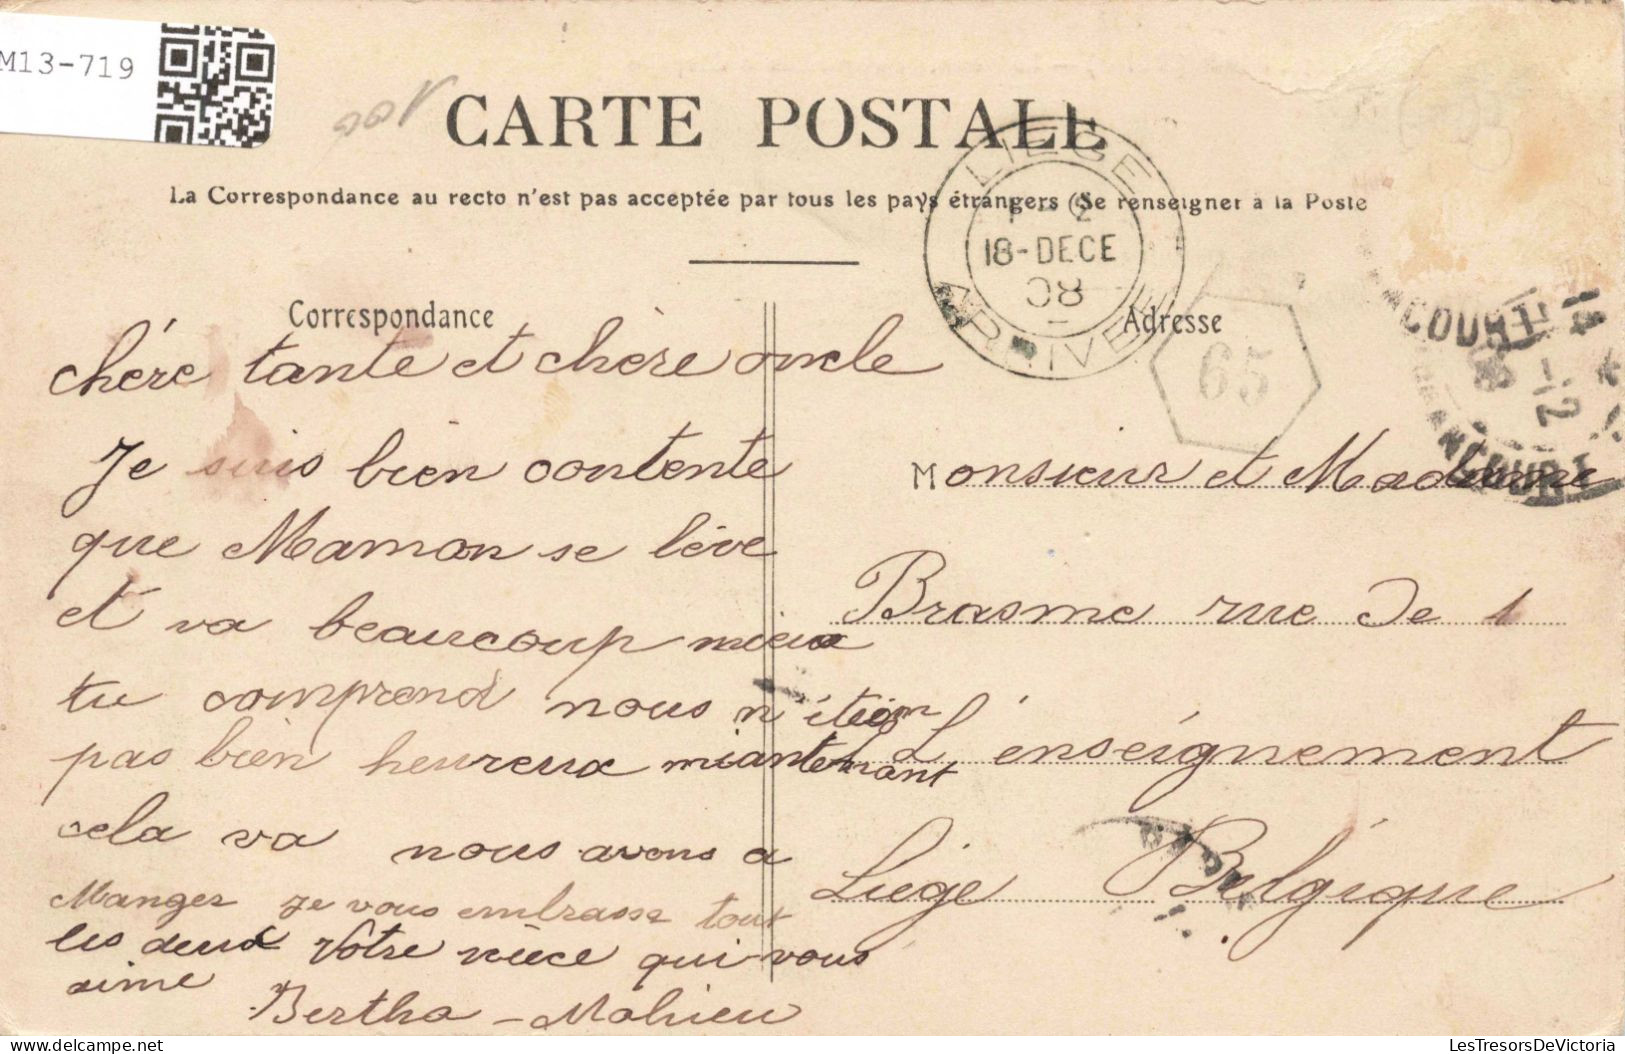 M13-719
CARTE POSTALE
La Correspondance au recto n'est pas acceptée par tous les pays étrangers (Se renseigner à la Poste
LIEGE
1-2
18-DECE
08
ARRIVEE
65
COURT
Correspondance
Adresse
chére tante et chère oncle
Je suis bien contente
que Maman se lève
et va beaucoup mieux
tu comprend nous n'étion
pas bien heureux miantenant
cela va nous avons a
Manger je vous embrasse tout
les deux Votre nièce qui vous
aime
Bertha - Mahieu
Monsieur et Madame
Brasme rue de
L'énséignement
Liège Belgique
LesTresorsDeVictoria
delcampe.net